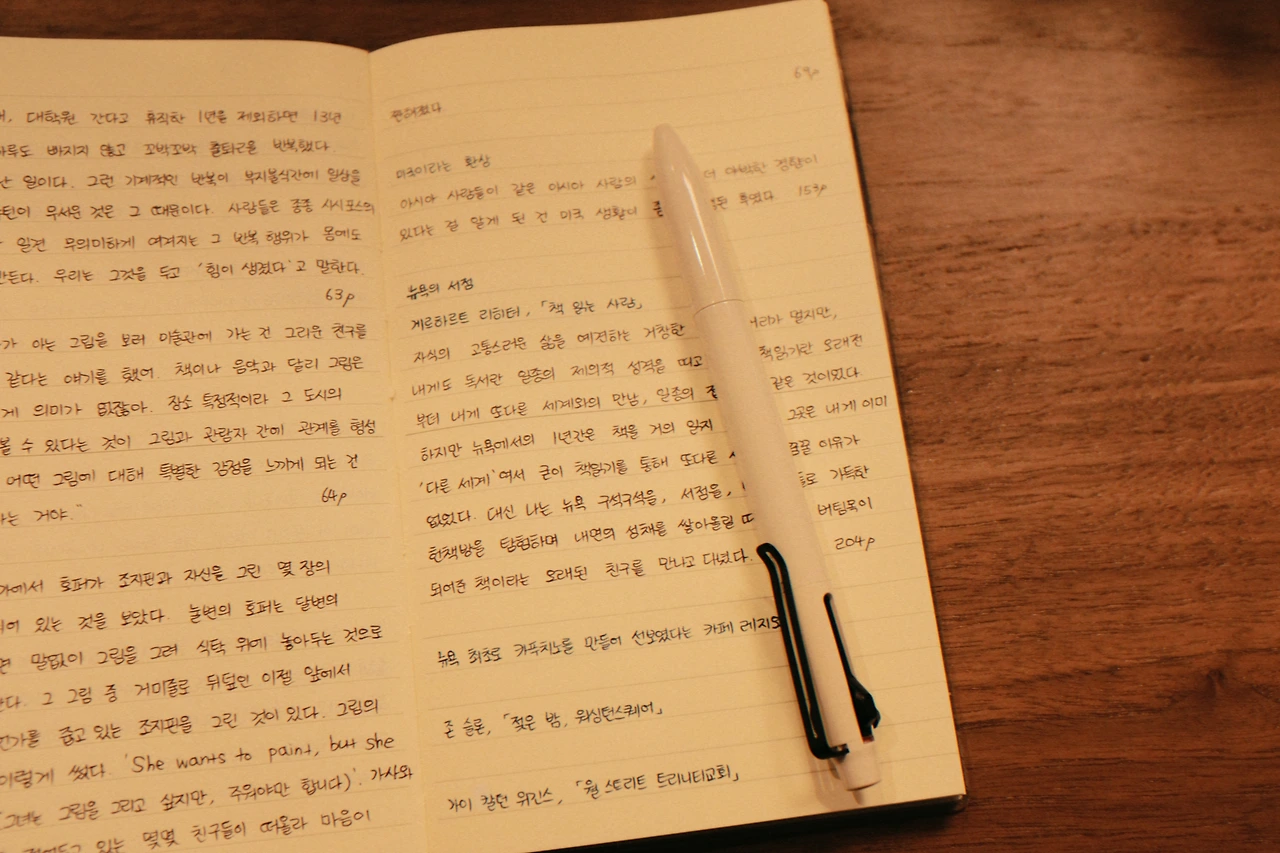 대학원 간다고 휴직한 1년을 제외하면 13년
하루도 빠지지 않고 꼬박꼬박 출퇴근을 반복했다
난 일이다. 그런 기계적인 반복이 부지불식간에 일상을
무서운 것은 그 때문이다. 사람들은 종종 시시포스의
일견 무의미하게 여겨지는 그 반복 행위가 몸에도
만든다. 우리는 그것을 두고 '힘이 생겼다'고 말한다.
63p
가 아는 그림을 보러 미술관에 가는 건 그리운 친구를
같다는 얘기를 했어. 책이나 음악과 달리 그림은
게 의미가 있잖아. 장소 특정적이라 그 도시의
볼 수 있다는 것이 그림과 관람자 간에 관계를 형성
어떤 그림에 대해 특별한 감정을 느끼게 되는 건
64p
라는 거야."
가에서 호퍼가 조지핀과 자신을 그린 몇 장의
되어 있는 것을 보았다. 눌변의 호퍼는 달변의
면 말없이 그림을 그려 식탁 위에 놓아두는 것으로
한다. 그 그림 중 거미줄로 뒤덮인 이젤 앞에서
줍고 있는 조지핀을 그린 것이 있다. 그림의
이렇게 썼다. 'She wants to paint, but she
(그녀는 그림을 그리고 싶지만, 주워야만 합니다)'. 가사와
있는 몇몇 친구들이 떠올라 마음이
69p
미국이라는 환상
아시아 사람들이 같은 아시아 사람의 더 야박한 경향이
있다는 걸 알게 된 건 미국 생활이 후였다. 153p
뉴욕의 서점
게르하르트 리히터, 「책 읽는 사람」
자식의 고통스러운 삶을 예견하는 거창한 멀지만,
내게도 독서란 일종의 제의적 성격을 띠고 책읽기란 오래전
부터 내게 또다른 세계와의 만남, 일종의 같은 것이었다.
하지만 뉴욕에서의 1년간은 책을 거의 읽지 그곳은 내게 이미
'다른 세계'여서 굳이 책읽기를 통해 또다른 꿈꿀 이유가
없었다. 대신 나는 뉴욕 구석구석을, 서점을, 가득한
헌책방을 탐험하며 내면의 성채를 쌓아올릴 버팀목이
되어준 책이라는 오래된 친구를 만나고 다녔다. 204p
뉴욕 최초로 카푸치노를 만들어 선보였다는 카페 레지오
존 슬론, 「젖은 밤, 워싱턴스퀘어」
가이 칼턴 위긴스, 「월 스트리트 트리니티교회」